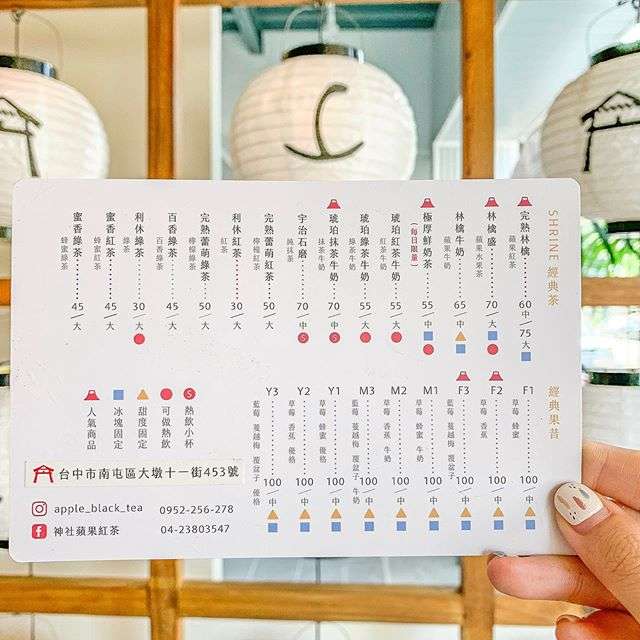 SHRINE 經典茶
完熟林檎 60/中 75/大
蘋果紅茶
林檎盛 70/大
蘋果水果茶
林檎牛奶 65/中
蘋果牛奶
極厚鮮奶茶 55/中
(每日限量)
琥珀紅茶牛奶 55/大
紅茶牛奶
琥珀綠茶牛奶 55/大
綠茶牛奶
琥珀抹茶牛奶 70/中
抹茶牛奶
宇治石磨 70/中
純抹茶
完熟蕾萌紅茶 50/大
檸檬紅茶
利休紅茶 30/大
紅茶
完熟蕾萌綠茶 50/大
檸檬綠茶
百香綠茶 45/大
百香綠茶
利休綠茶 30/大
綠茶
蜜香紅茶 45/大
蜂蜜紅茶
蜜香綠茶 45/大
蜂蜜綠茶
經典果昔
F1 100/中
草莓 蜂蜜
F2 100/中
草莓 香蕉
F3 100/中
藍莓 蔓越梅 覆盆子
M1 100/中
草莓 蜂蜜 牛奶
M2 100/中
草莓 香蕉 牛奶
M3 100/中
藍莓 蔓越梅 覆盆子 牛奶
Y1 100/中
草莓 蜂蜜 優格
Y2 100/中
草莓 香蕉 優格
Y3 100/中
藍莓 蔓越梅 覆盆子 優格
S 熱飲小杯
可做熱飲
甜度固定
冰塊固定
人氣商品
台中市南屯區大墩十一街453號
apple_black_tea 0952-256-278
神社蘋果紅茶 04-23803547